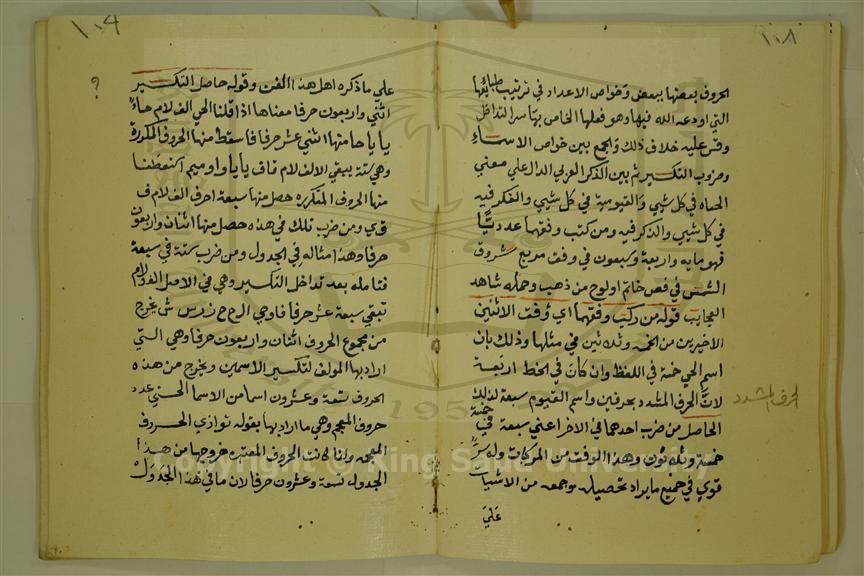 ١٠٨
الحروف بعضها ببعض وخواص الاعداد في ترتيب طبائعها
التي اودعه الله فيها وهو فعلها الخاص بها سر التداخل
وقس عليه خلاف ذلك والجمع بين خواص الاسماء
وضروب التكسير ثم بين الذكر العزلي الدال علي معني
الحياه في كل شيي والقيومية في كل شيي والفكر فيه
في كل شيي والذكر فيه ومن كتب وفقهما عدديًا
فهو مايه واربعة وسبعون في وفق مربع شروق
الشمس في فص خاتم اولوح من ذهب وحمله شاهد
العجايب قوله من ركب وفقهما اي وفق الاثنين
الاخيرين من الخمسه وثلاثين في مثلها وذلك بان
اسم الحي خمسة في اللفظ وان كان في الخط اربعة
لان الحرف المشدد بحرفين واسم القيوم سبعة لذلك
الحرف المشدد
الحاصل من ضرب احدهما في الاخر اعني سبعة في خمسة
خمسة وثلاثون وهذا الوفق من المركبات وله سر
قوي في جميع مايراد تحصيله وجمعه من الاشيات
علي
١٠٩
علي ما ذكره اهل هذا الفن وقوله حاصل التكسير
؟
اثني واربعون حرفا معناها اذا قلنا الحي الف لام حاء
يا يا حا منها اثني عشر حرفا فاسقط منها الحروف المكررة
وهي ستة يبقي الالف لام قاف يا يا واو ميم اسقطنا
منها الحروف المتكرره حصل منها سبعة احرف الف لام ف
ق وي ومن ضرب تلك في هذه حصل منها اثنان واربعون
حرفا وهذا امثاله في الجدول ومن ضرب ستة في سبعة
فتامله بعد تداخل التكسير وهي في الاصل الف ولام
تبقي سبعة عشر حرفا
من مجموع الحروف اثنان واربعون حرفا وهي التي
اراد بها المولف لتكسير الاسمين ويخرج من هذه
الحروف تسعة وعشرون اسما من الاسما الحسني عدد
حروف المعجم وهي ما اراد بها بقوله توازي الحروف
المعجمه ولما كانت الحروف المعتبره خروجها من هذا
الجدول تسعة وعشرون حرفا لان ما في هذا الجدول
Copyright © King Saud University
195